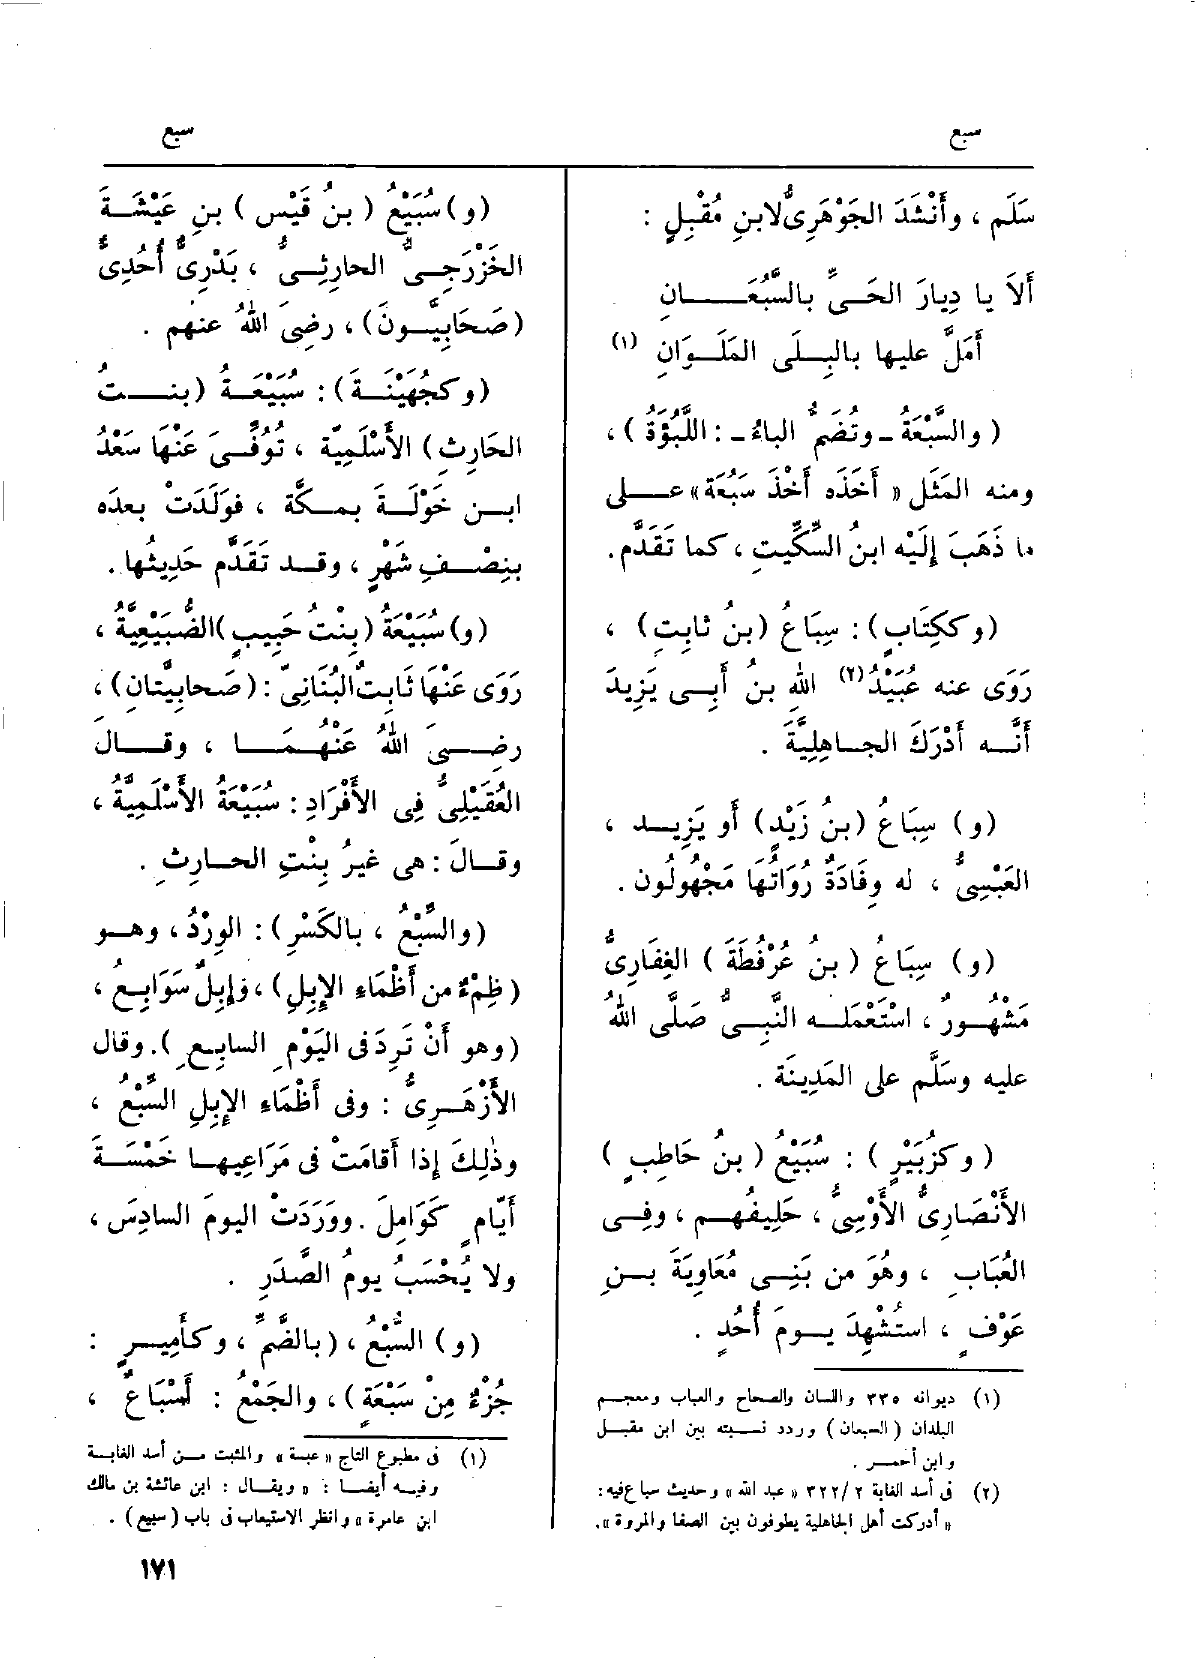 سبع
سبع
سَلَم ، وأَنْشَدَ الجَوْهَرِىُّ لابنِ مُقْبِلٍ :
أَلاَ يا دِيارَ الحَىِّ بالسَّبُعَــانِ
أَمَلَّ عليها بالبِلَى المَلَوانِ (١)
( والسَّبْعَةُ ـ وتُضَمُّ الباءُ ـ : اللَّبُؤَةُ ) ،
ومنه المَثَل « أَخَذَه أَخْذَ سَبْعَة » على
ما ذَهَبَ إِلَيْه ابنُ السِّكِّيتِ ، كما تَقَدَّم.
(وككِتَابٍ) : سِبَاعُ (بنُ ثابِتٍ) ،
رَوَى عنه عُبَيْدُ (٢) اللهِ بنُ أَبى يَزِيدَ
أَنَّه أَدْرَكَ الجاهِلِيَّةَ .
(و) سِبَاعُ (بنُ زَيْدٍ) أَو يَزِيد ،
العَبْسِىُّ ، له وِفَادَةٌ رُوَاتُهَا مَجْهُولُون .
(و) سِبَاعُ ( بنُ عُرْفُطَةَ ) الغِفَارِىُّ
مَشْهُورٌ ، اسْتَعْمَلَه النَّبِىُّ صَلَّى اللهُ
عليه وسَلَّم على المَدِينَة .
( وكزُبَيْرٍ ) : سُبَيْعُ ( بنُ حَاطِبٍ )
الأَنْصَارِىُّ الأَوْسِىُّ ، حَلِيفُهم ، وفِى
العُبَابِ ، وهُوَ من بَنِى مُعَاوِيَةَ بنِ
عَوْفٍ ، استُشْهِدَ يومَ أُحُدٍ .
(١) ديوانه ٣٣٥ واللسان والصحاح والعباب ومعجم
البلدان (السبعان) وردد نسبته بين ابن مقبل
وابن أحمر .
(٢) فى أسد الغابة ٢ / ٣٢٢ « عبد الله » وحديث سباع فيه :
« أدركت أهل الجاهلية يطوفون بين الصفا والمروة ».
(و) سُبَيْعُ ( بنُ قَيْس ) بنِ عَيْشَةَ
الخَزْرَجِىُّ الحارِثِىُّ ، بَدْرِىٌّ أُحُدِىٌّ
(صَحَابِيّونَ) ، رضِىَ اللهُ عنهم .
(وكجُهَيْنَةَ) : سُبَيْعَةُ (بنتُ
الحَارِثِ) الأَسْلَمِيّة ، تُوُفِّىَ عَنْهَا سَعْدُ
ابن خَوْلَةَ بمكَّة ، فوَلَدَتْ بعدَه
بنِصْفِ شَهْرٍ ، وقد تَقَدَّم حَدِيثُها .
(و) سُبَيْعَةُ (بِنْتُ حَبِيبٍ) الضُّبَيْعِيَّةُ ،
رَوَى عَنْهَا ثَابِتٌ البُنَانِىّ : (صَحابِيَّتَانِ) ،
رضِىَ اللهُ عَنْهُمَا ، وقالَ
العُقَيْلِىُّ فِى الأَفْرَادِ : سُبَيْعَةُ الأَسْلَمِيَّةُ ،
وقالَ : هى غيرُ بِنْتِ الحارِثِ .
(والسِّبْعُ ، بالكَسْرِ) : الوِرْدُ ، وهو
(ظِمْءٌ من أَظْمَاءِ الإِبِلِ) ، وإِبِلٌ سَوَابِعُ ،
(وهو أَنْ تَرِدَ فى اليَوْمِ السابِعِ). وقال
الأَزْهَرِىُّ : وفى أَظْمَاءِ الإِبِلِ السِّبْعُ ،
وذلِكَ إِذا أَقامَتْ فى مَرَاعِيها خَمْسَةَ
أَيّامٍ كَوَامِلَ . ووَرَدَتْ اليومَ السادِسَ ،
ولا يُحْسَبُ يومُ الصَّدَرِ .
(و) السُّبْعُ ، (بالضَّمِّ ، وكأَمِيرٍ :
جُزْءٌ مِنْ سَبْعَةٍ) ، والجَمْعُ : أَسْبَاعٌ ،
(١) فى مطبوع التاج « عبسة » والمثبت من أسد الغابة
وفيه أيضا : « ويقال : ابن عائشة بن مالك
ابن عامرة » وانظر الاستيعاب فى باب (سبيع) .
١٧١